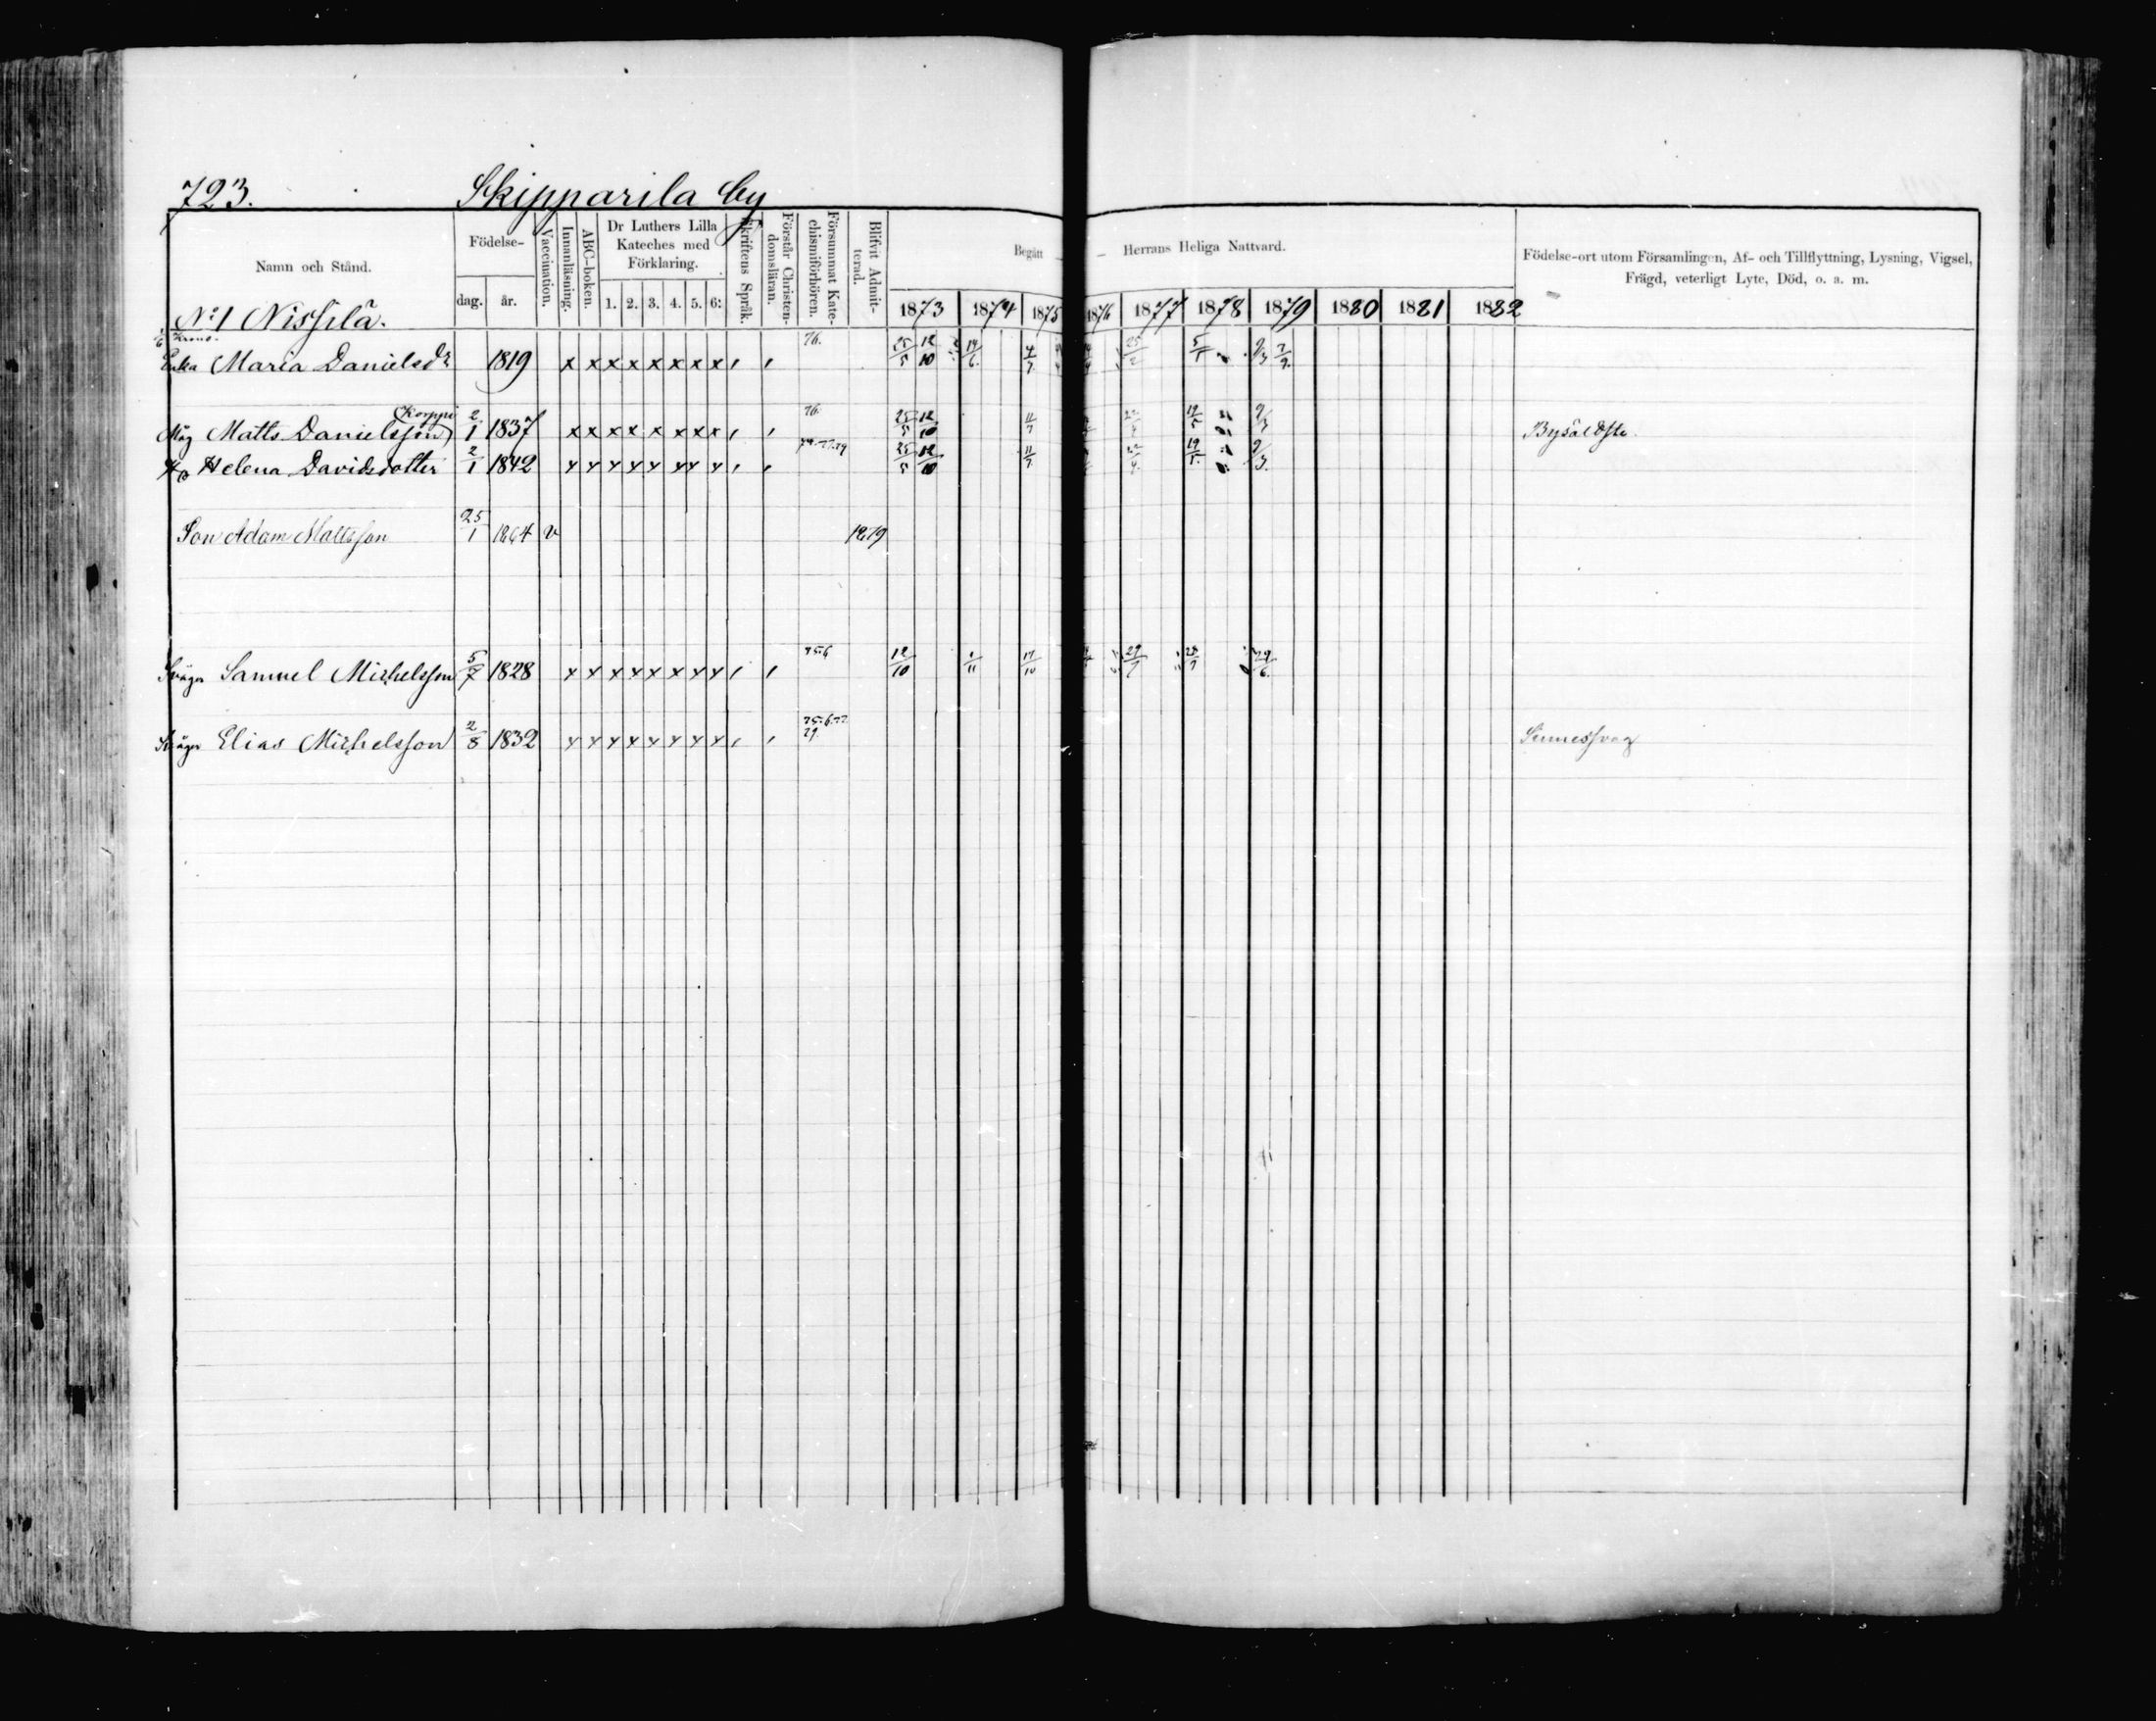 723. Skipparila by
Namn och Stånd.
Födelse-
dag. år.
Vaccination.
Innanläsning.
ABC-boken.
Dr Luthers Lilla
Kateches med
Förklaring.
1. 2. 3. 4. 5. 6:
Skriftens Språk.
Förstår Christen-
domsläran.
Försummat Kate-
chismiförhören.
Blifvit Admit-
terad.
Begått Herrans Heliga Nattvard.
1873 1874 1875 1876 1877 1878 1879 1880 1881 1882
Födelse-ort utom Församlingen, Af- och Tillflyttning, Lysning, Vigsel,
Frägd, veterligt Lyte, Död, o. a. m.
No 1 Nissilä.
Enka Maria Danielsdr 1819 x x x x x x x x 76. 25/5 12/10 14/6 4/7 5/1 9/3 7/9
Korppi
Måg Matts Danielsson 2/1 1837 x x x x x x x x 76. 25/5 12/10 11/7 19/5 9/3 Byåldste.
Hu Helena Davidsdotter 2/1 1842 x x x x x x x x 74.77.79 25/5 12/10 11/7 19/5 9/3
Son Adam Mattsson 25/1 1864 v 1879
Svåger Samuel Michelsson 5/7 1828 x x x x x x x x 75.6 12/10 1/11 17/10 29/7 28/7 29/6
Svåger Elias Michelsson 2/8 1832 x x x x x x x x 75.6.77
79. Sinnessvag